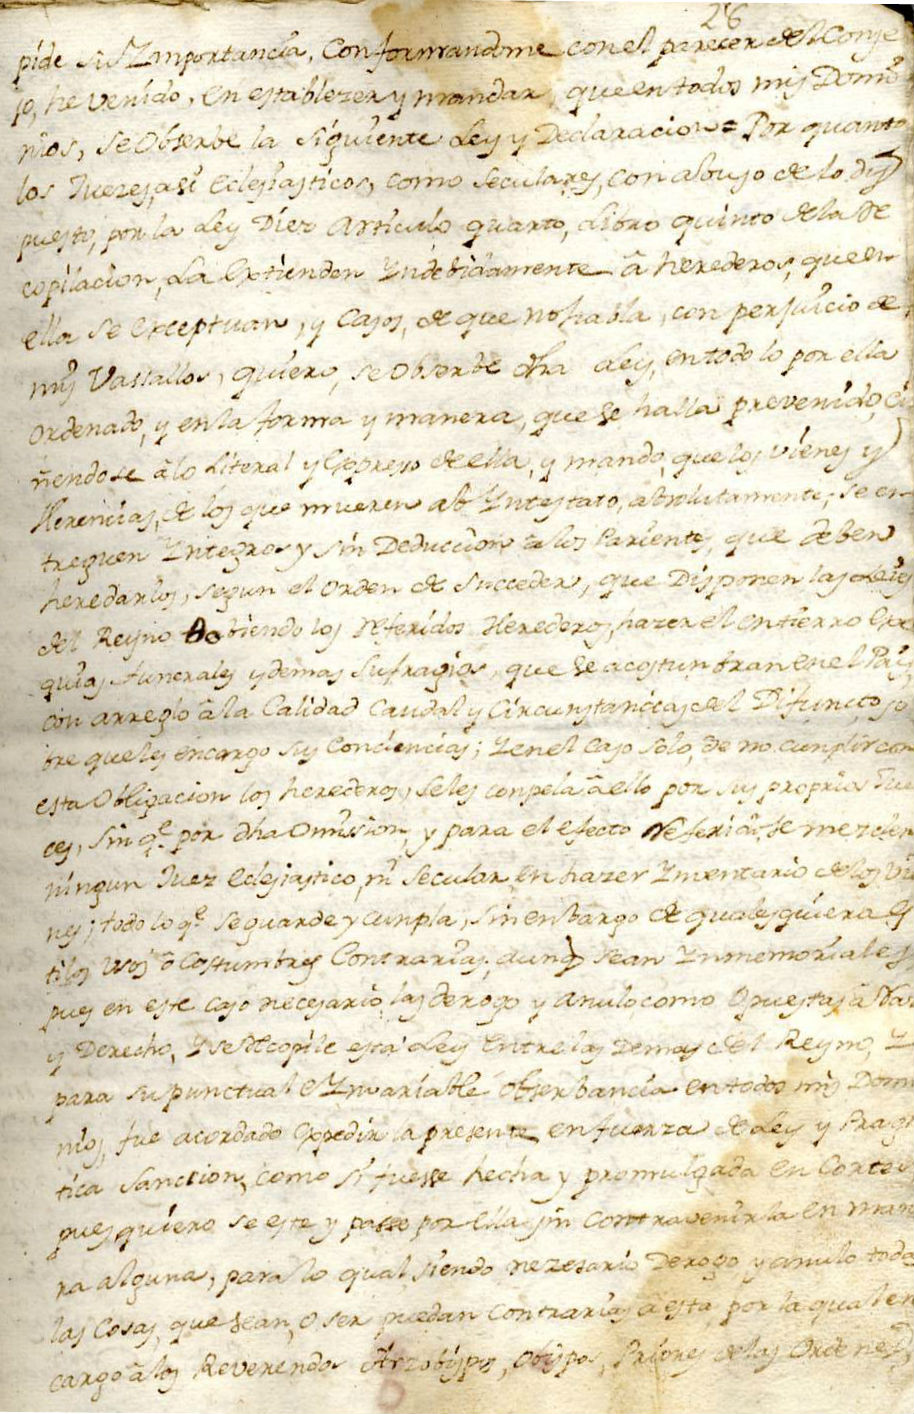 26
pide su Ymportancia, Conformandome con el parecer del Conse
jo, he venido, en establezer y mandar, que en todos mis Domi
nios, se Obserbe la siguiente Ley y Declaracion = Por quanto
los Juezes, asi Eclesiasticos, como Seculares, con abuso de lo dis
puesto, por la Ley Diez Articulo quarto, Libro quinto de la Re
copilacion, La Extienden Yndebidamente â herederos, que en
ella se Exceptuan, y Casos, de que no habla, con perjuicio de
mis Vassallos, quiero, se Obserbe dha Ley, en todo lo por ella
Ordenado, y en la forma y manera, que se halla prevenido, Ci
ñendose â lo Literal y Expreso de ella, y mando, que los vienes y
Herencias, de los que mueren ab Yntestato, absolutamente, se en
treguen Yntegros y sin Deduccion a los Parientes, que deben
heredarlos, segun el Orden de Succeder, que Disponen las Leies
del Reyno Debiendo los Referidos Herederos, hazer el entierro Exe
quias funerales y demas Sufragios, que se acostunbran en el Pais,
con arreglo â la Calidad Caudal y Circunstancias del Difuncto so
bre que les encargo sus Conciencias; Y en el Caso solo, de no cunplir con
esta Obligacion los herederos, se les conpela â ello por sus proprios Jue
ces, sin qe. por dha Omission, y para el efecto Referido se mezclen
ningun Juez Eclesiastico, ni Secular en hazer Ymventario de los Vie
nes; todo lo qe. se guarde y cunpla, sin enbargo de qualesquiera Es
tilos Usos ô Costumbres Contrarias, aunq sean Ynmemoriales,
pues en este caso necesario, las derogo y anulo, como Opuestas a
y Derecho, Y se Recopile esta Ley Entre las Demas del Reyno, Y
para su punctual e Ynvariable Obserbancia en todos mis Domi
nios, fue acordado Expedir la presente en fuerza de Ley y Prag
tica Sanction, como si fuesse hecha y promulgada en Cortes
pues quiero se este y passe por ella sin Contravenirla en mane
ra alguna, para lo qual siendo nezesario Derogo y anulo todas
las Cosas, que sean, o ser puedan Contrarias a esta, por la qual en
cargo â los Reverendos Arzobispos, Obispos, Priores de las Ordenes,